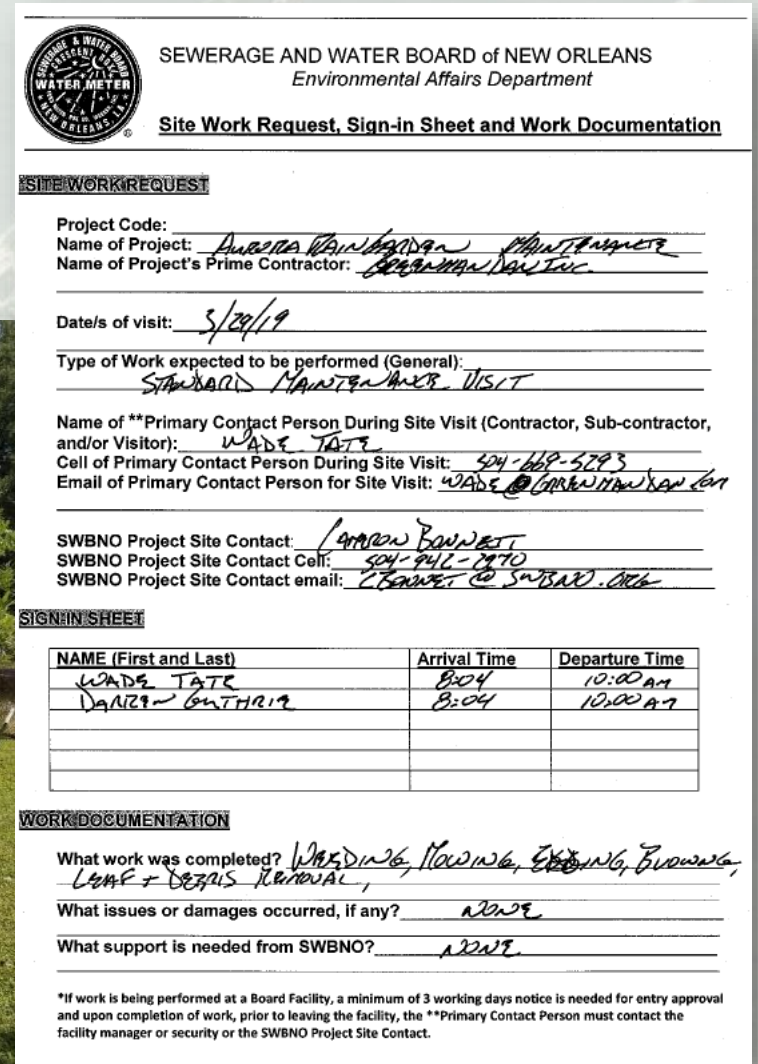 SEWERAGE & WATER BOARD
CRESCENT BOX
WATER METER
NEW ORLEANS, LA.
®
SEWERAGE AND WATER BOARD of NEW ORLEANS
Environmental Affairs Department
Site Work Request, Sign-in Sheet and Work Documentation
*SITE WORK REQUEST
Project Code:
Name of Project: AURORA RAINGARDEN MAINTENANCE
Name of Project's Prime Contractor: GREENMAN DAN INC.
Date/s of visit: 3/29/19
Type of Work expected to be performed (General):
STANDARD MAINTENANCE VISIT
Name of **Primary Contact Person During Site Visit (Contractor, Sub-contractor,
and/or Visitor): WADE TATE
Cell of Primary Contact Person During Site Visit: 504-669-5293
Email of Primary Contact Person for Site Visit: WADE @ GREENMANDAN.COM
SWBNO Project Site Contact: CAMERON BONNETT
SWBNO Project Site Contact Cell: 504-942-2970
SWBNO Project Site Contact email: CBONNET @ SWBNO.ORG
SIGN-IN SHEET
NAME (First and Last) Arrival Time Departure Time
WADE TATE 8:04 10:00 AM
DARREN GUTHRIE 8:04 10:00 AM
WORK DOCUMENTATION
What work was completed? WEEDING, MOWING, EDGING, BLOWING,
LEAF + DEBRIS REMOVAL,
What issues or damages occurred, if any? NONE
What support is needed from SWBNO? NONE
*If work is being performed at a Board Facility, a minimum of 3 working days notice is needed for entry approval
and upon completion of work, prior to leaving the facility, the **Primary Contact Person must contact the
facility manager or security or the SWBNO Project Site Contact.